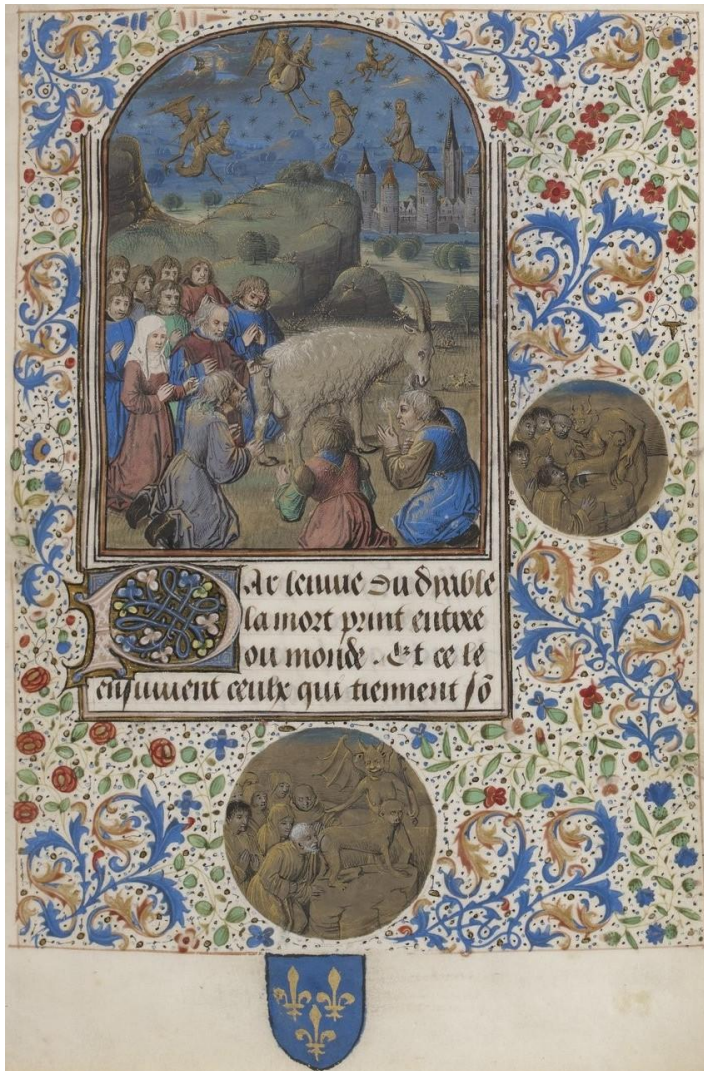 Par lenuie du dyable
la mort print entree
ou monde . Et ce le
ensuiuent ceulx qui tiennent sõ